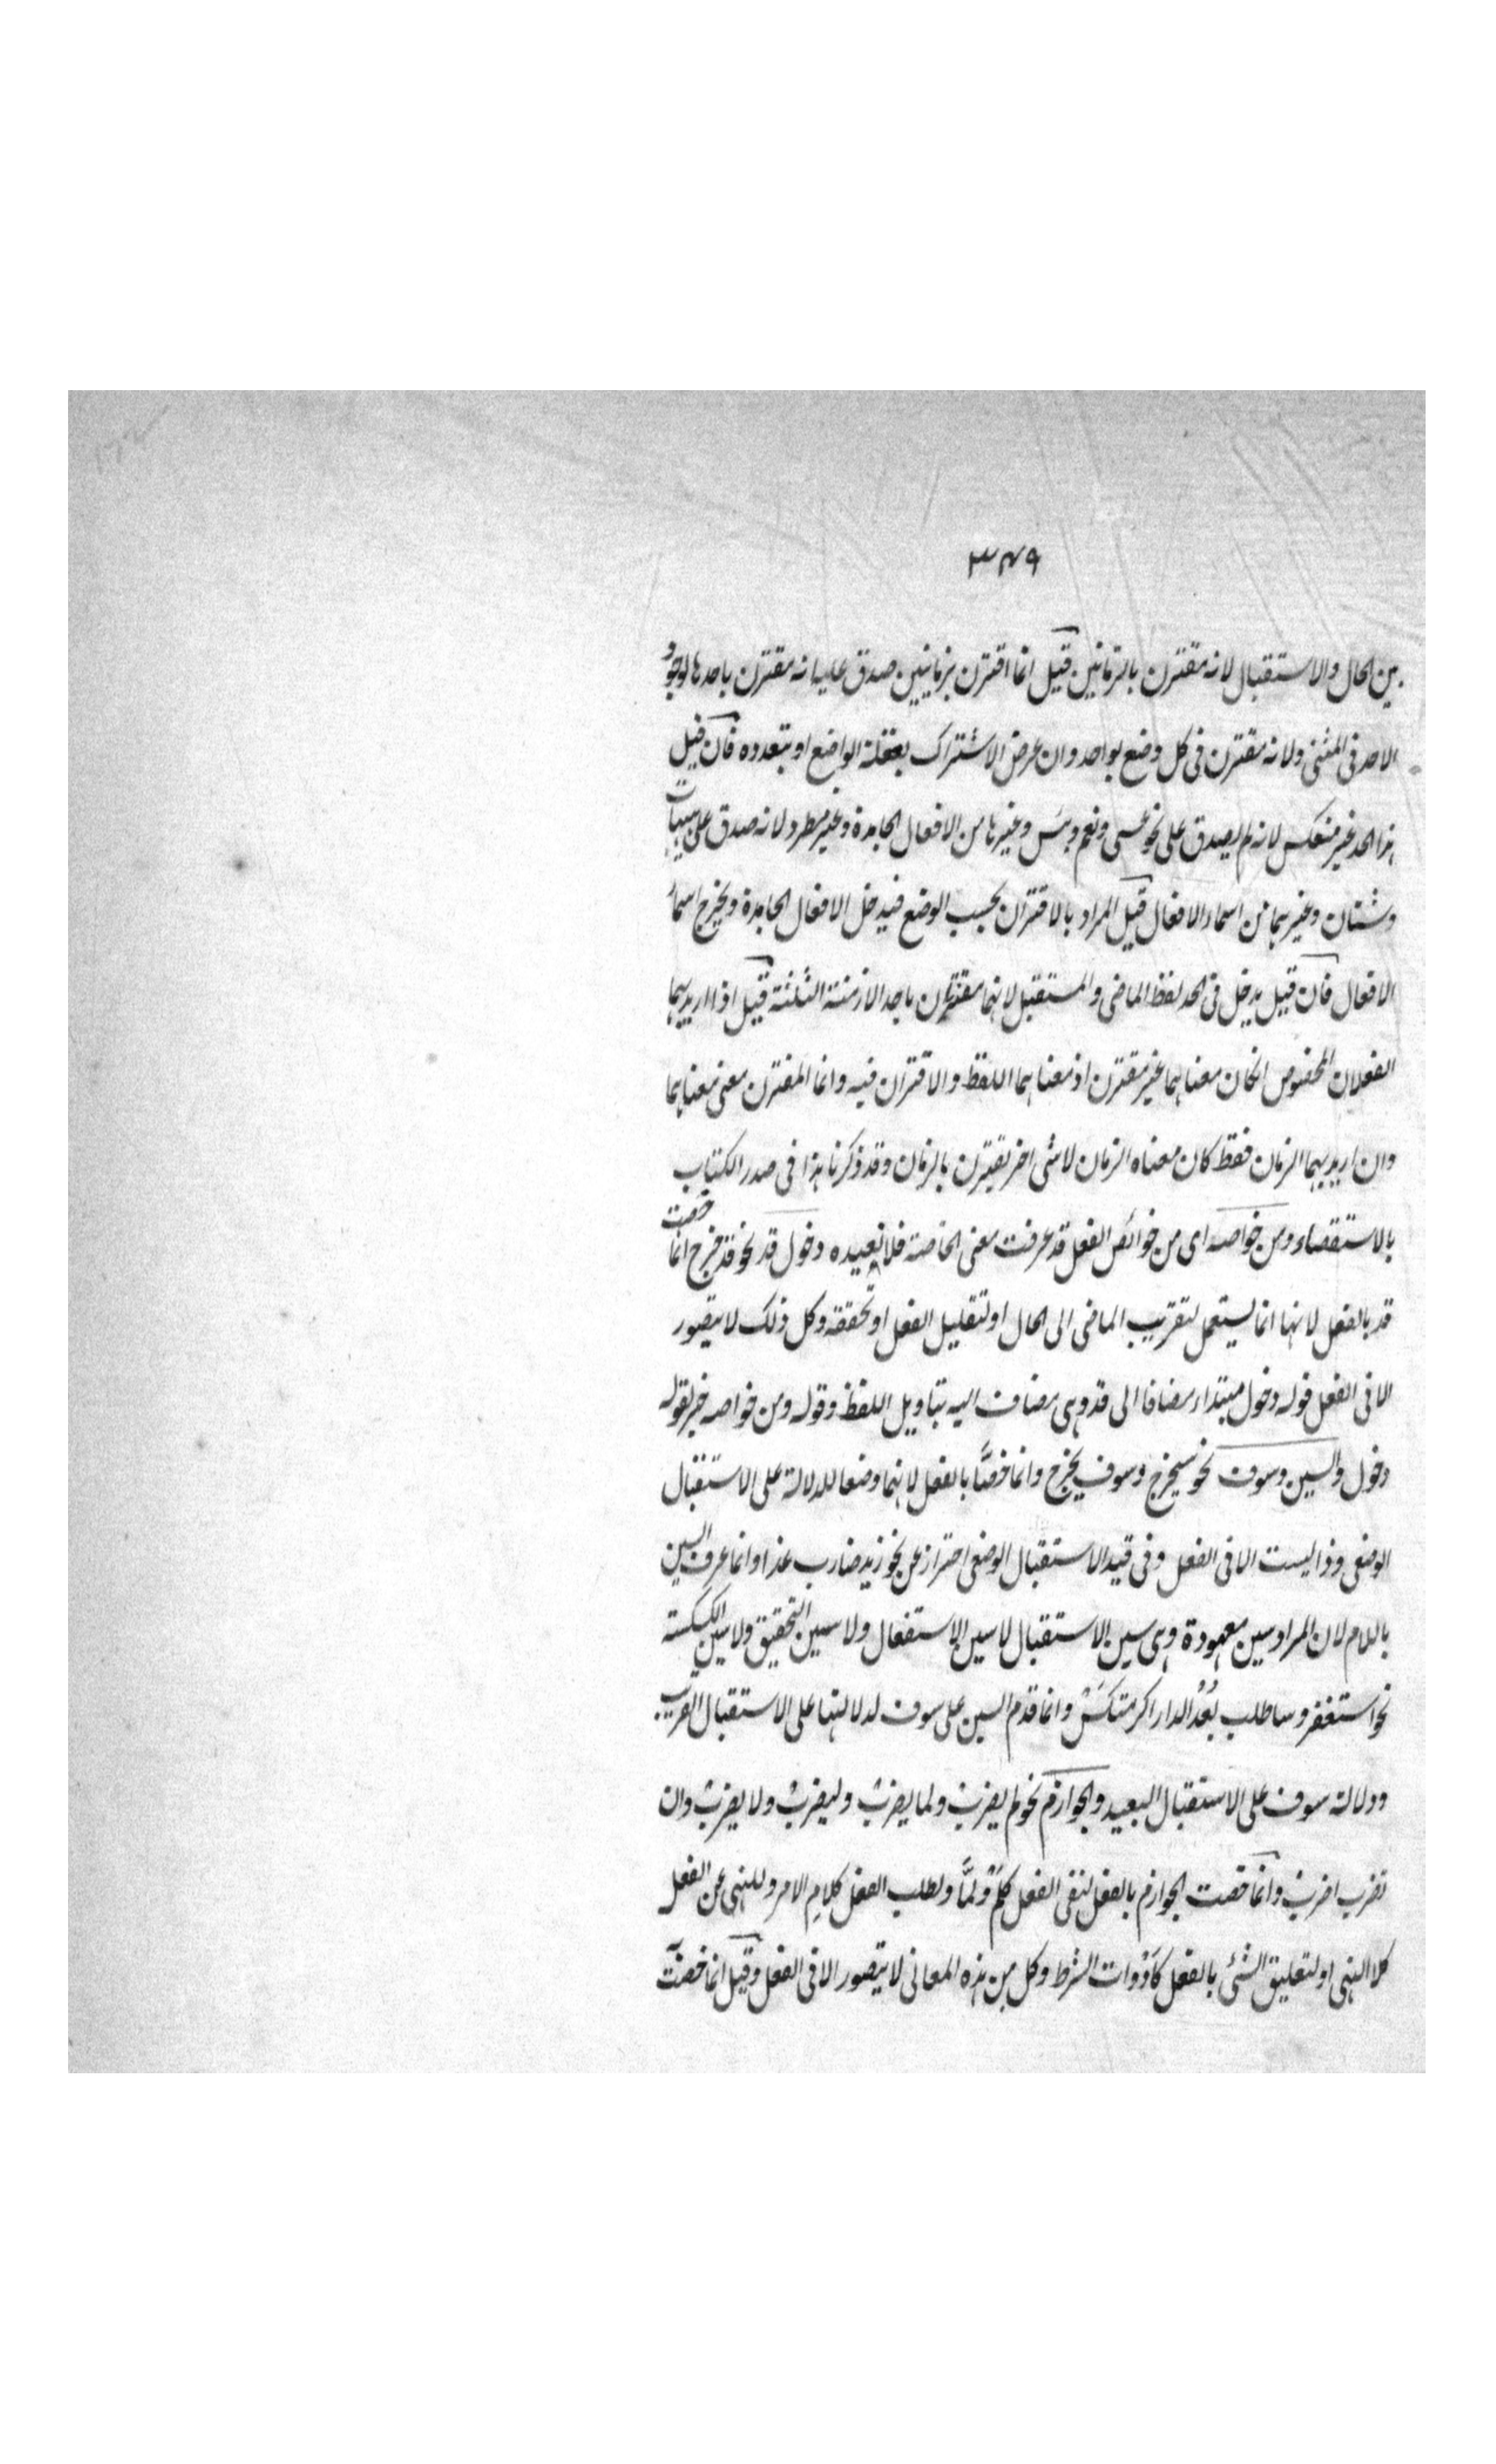 ٣٤٩
بين الحال والاستقبال لانه مقترن بالزمانين قيل انما اقترن بزمانين صدق عليه انه مقترن باحدهما لوجود
الاحد فى المثنى ولانه مقترن فى كل وضع بواحد وان عرض الاشتراك بغفلة الواضع او بتعدده فان قيل
هذا الحد غير منعكس لانه لم يصدق على نحو عسى ونعم وبئس وغيرها من الافعال الجامدة وغير مطرد لانه صدق على هيهات
وشتان وغيرهما من اسماء الافعال قيل المراد بالاقتران بحسب الوضع فيدخل الافعال الجامدة ويخرج اسماء
الافعال فان قيل يدخل فى الحد لفظ الماضى والمستقبل لانهما مقترن باحد الازمنة الثلثة قيل اذا اريد بهما
الفعلان المخصوص انكان معناهما غير مقترن اذ معناهما اللفظ والاقتران فيه وانما المقترن معنى معناهما
وان اريد بهما الزمان فقط كان معناه الزمان لا شى اخر يقترن بالزمان وقد ذكرنا هذا فى صدر الكتاب
بالاستقصاء ومن خواصه اى من خوائص الفعل قد عرفت معنى الخاصة فلا نعيده دخول قد نحو قد خرج انما خصت
قد بالفعل لانها انما يستعمل لتقريب الماضى الى الحال او لتقليل الفعل او تحققه وكل ذلك لا يتصور
الا فى الفعل قوله دخول مبتداء مضافا الى قد وهى مضاف اليه بتاويل اللفظ وقوله ومن خواصه خبر لقوله
دخول والسين وسوف نحو سيخرج وسوف يخرج وانما خصّا بالفعل لانهما وضعا للدلالة على الاستقبال
الوضعى وذا ليست الا فى الفعل وفى قيد الاستقبال الوضعى احتراز عن نحو زيد ضارب غدا وانما عرف السين
باللام لان المراد سين معهودة وهى سين الاستقبال لا سين الاستفعال ولا سين التحقيق ولا سين الكسكسة
نحو استغفر وساطلب بُعْدَ الدار اكرمتكسْ وانما قدم السين على سوف لدلالتها على الاستقبال القريب
ودلالة سوف على الاستقبال البعيد والجوازم نحو لم يضربْ ولما يضربْ وليضربْ ولا يضربْ وان
تضرب اضربْ وانما خصت الجوازم بالفعل لنفى الفعل كلم ولمّا ولطلب الفعل كلامِ الامر وللنهى عن الفعل
كلا النهى او لتعليق الشئ بالفعل كأدوات الشرط وكل من هذه المعانى لا يتصور الا فى الفعل وقيل انما خصت